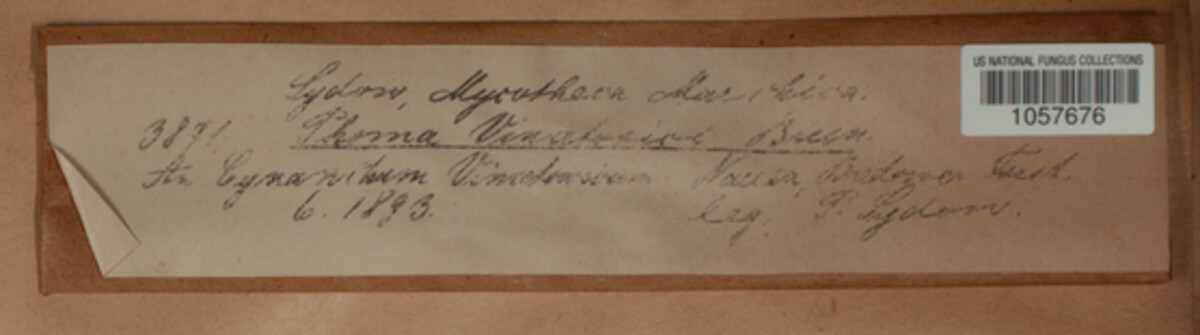 US NATIONAL FUNGUS COLLECTIONS
1057676
Sydow, Mycotheca Marchica.
3871. Phoma Vincetoxici Bres.
An Cynanchum Vincetoxicum. Nauen, Bredower Forst.
6. 1893. leg. P. Sydow.